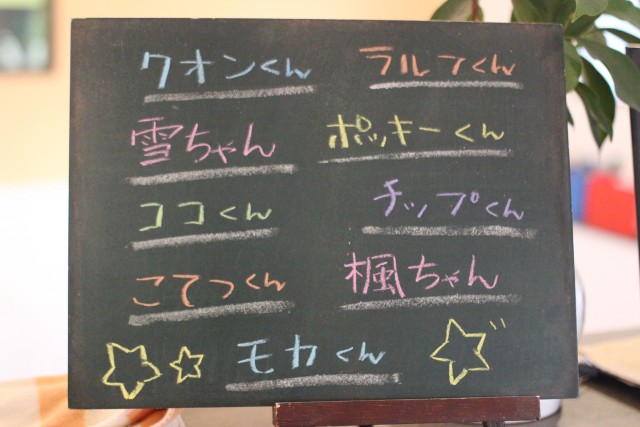 クオンくん ラルフくん
雪ちゃん ポッキーくん
ココくん チップくん
こてつくん 楓ちゃん
モカくん